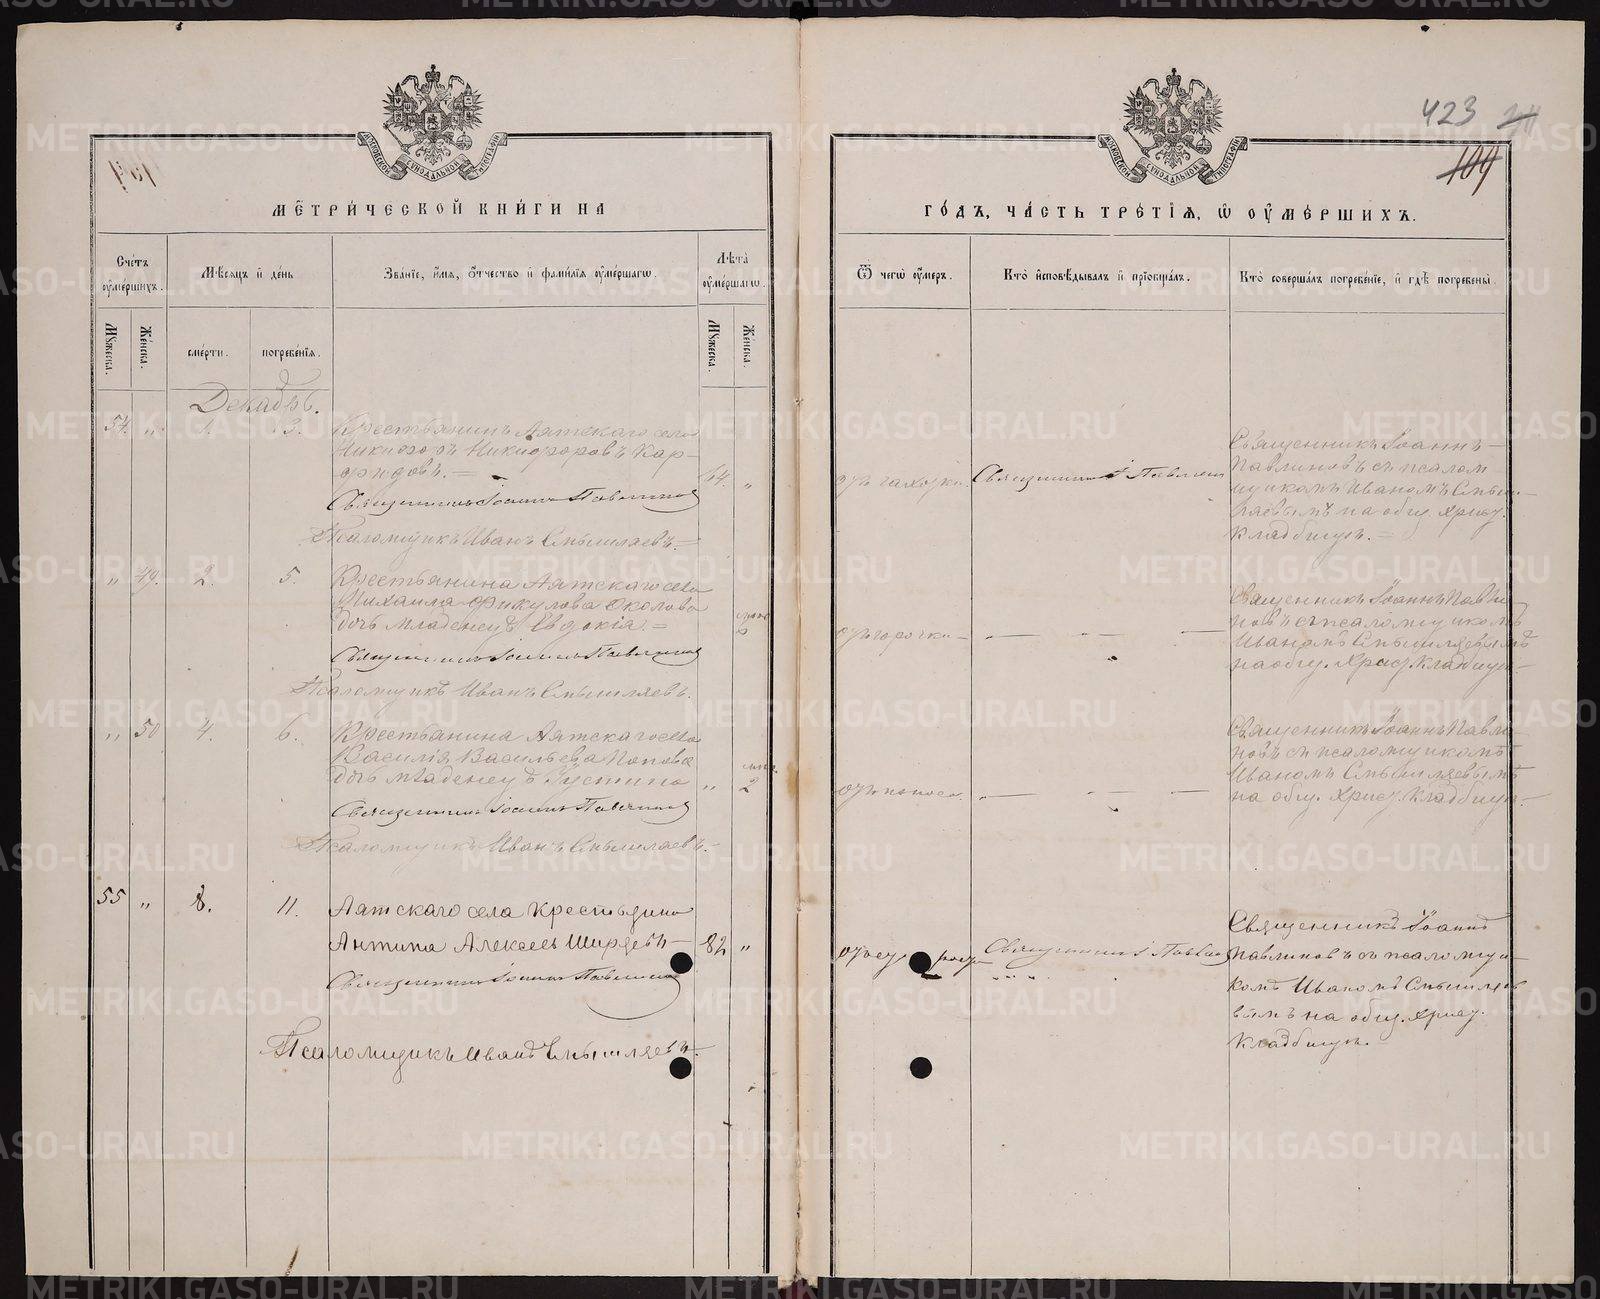 423 24
104
МОСКОВСКОЙ СѴНОДАЛЬНОЙ ТИПОГРАФІИ
МЕТРИ́ЧЕСКОЙ КНИ́ГИ НА
Счетъ ᲂу҆мершихъ.
Мѣсяцъ и҆ день
Званїе, и҆мя, ѻ҆тчество и҆ фамилїя ᲂу҆мершагѡ.
Лѣта ᲂу҆мершагѡ.
Мꙋжеска.
Женска.
смерти.
погребенїя.
Мꙋжеска.
Женска.
Декабрь.
54. „ 1. 3. Крестьянинъ Аятскаго села
Никифоръ Никифоровъ Кар-
фидовъ. =
64. „
Священникъ Іоаннъ Павлиновъ
Псаломщикъ Иванъ Смышляевъ. =
„ 49. 2. 5. Крестьянина Аятскаго села
Михаила Фикулова Околова
дочь младенецъ Евдокія. =
Священникъ Іоаннъ Павлиновъ
Псаломщикъ Иванъ Смышляевъ.
„ 50 4. 6. Крестьянина Аятскаго села
Василія Васильева Попова
дочь младенецъ Устина
„ 2
Священникъ Іоаннъ Павлиновъ
Псаломщикъ Иванъ Смышляевъ.
55 „ 8. 11. Аятскаго села Крестьянинъ
Антипа Алексеевъ Ширяевъ 82 „
Священникъ Іоаннъ Павлиновъ
Псаломщикъ Иванъ Смышляевъ.
МОСКОВСКОЙ СѴНОДАЛЬНОЙ ТИПОГРАФІИ
ГО́ДЪ, ЧА́СТЬ ТРЕ́ТЇЯ, Ѡ҆ ОУ҆МЕ́РШИХЪ.
Ѿ чегѡ ᲂу҆меръ.
Кто и҆сповѣдывалъ и҆ прїобщалъ.
Кто совершалъ погребенїе, и҆ гдѣ погребены.
отъ чахотки.
Священникъ І Павлиновъ
Священникъ Іоаннъ
Павлиновъ съ псалом-
щикомъ Иваномъ Смыш-
ляевымъ на общ. Христ.
кладбищѣ. =
отъ горячки
Священникъ Іоаннъ Павли-
новъ съ псаломщикомъ
Иваномъ Смышляевымъ
на общ. Христ. Кладбищѣ
отъ поноса.
Священникъ Іоаннъ Павли-
новъ съ псаломщикомъ
Иваномъ Смышляевымъ
на общ. Христ. Кладбищѣ.
Священникъ І Павлиновъ
Священникъ Іоаннъ
Павлиновъ съ псаломщи-
комъ Иваномъ Смышляе-
вымъ на общ. Христ.
Кладбищѣ.
METRIKI.GASO-URAL.RU